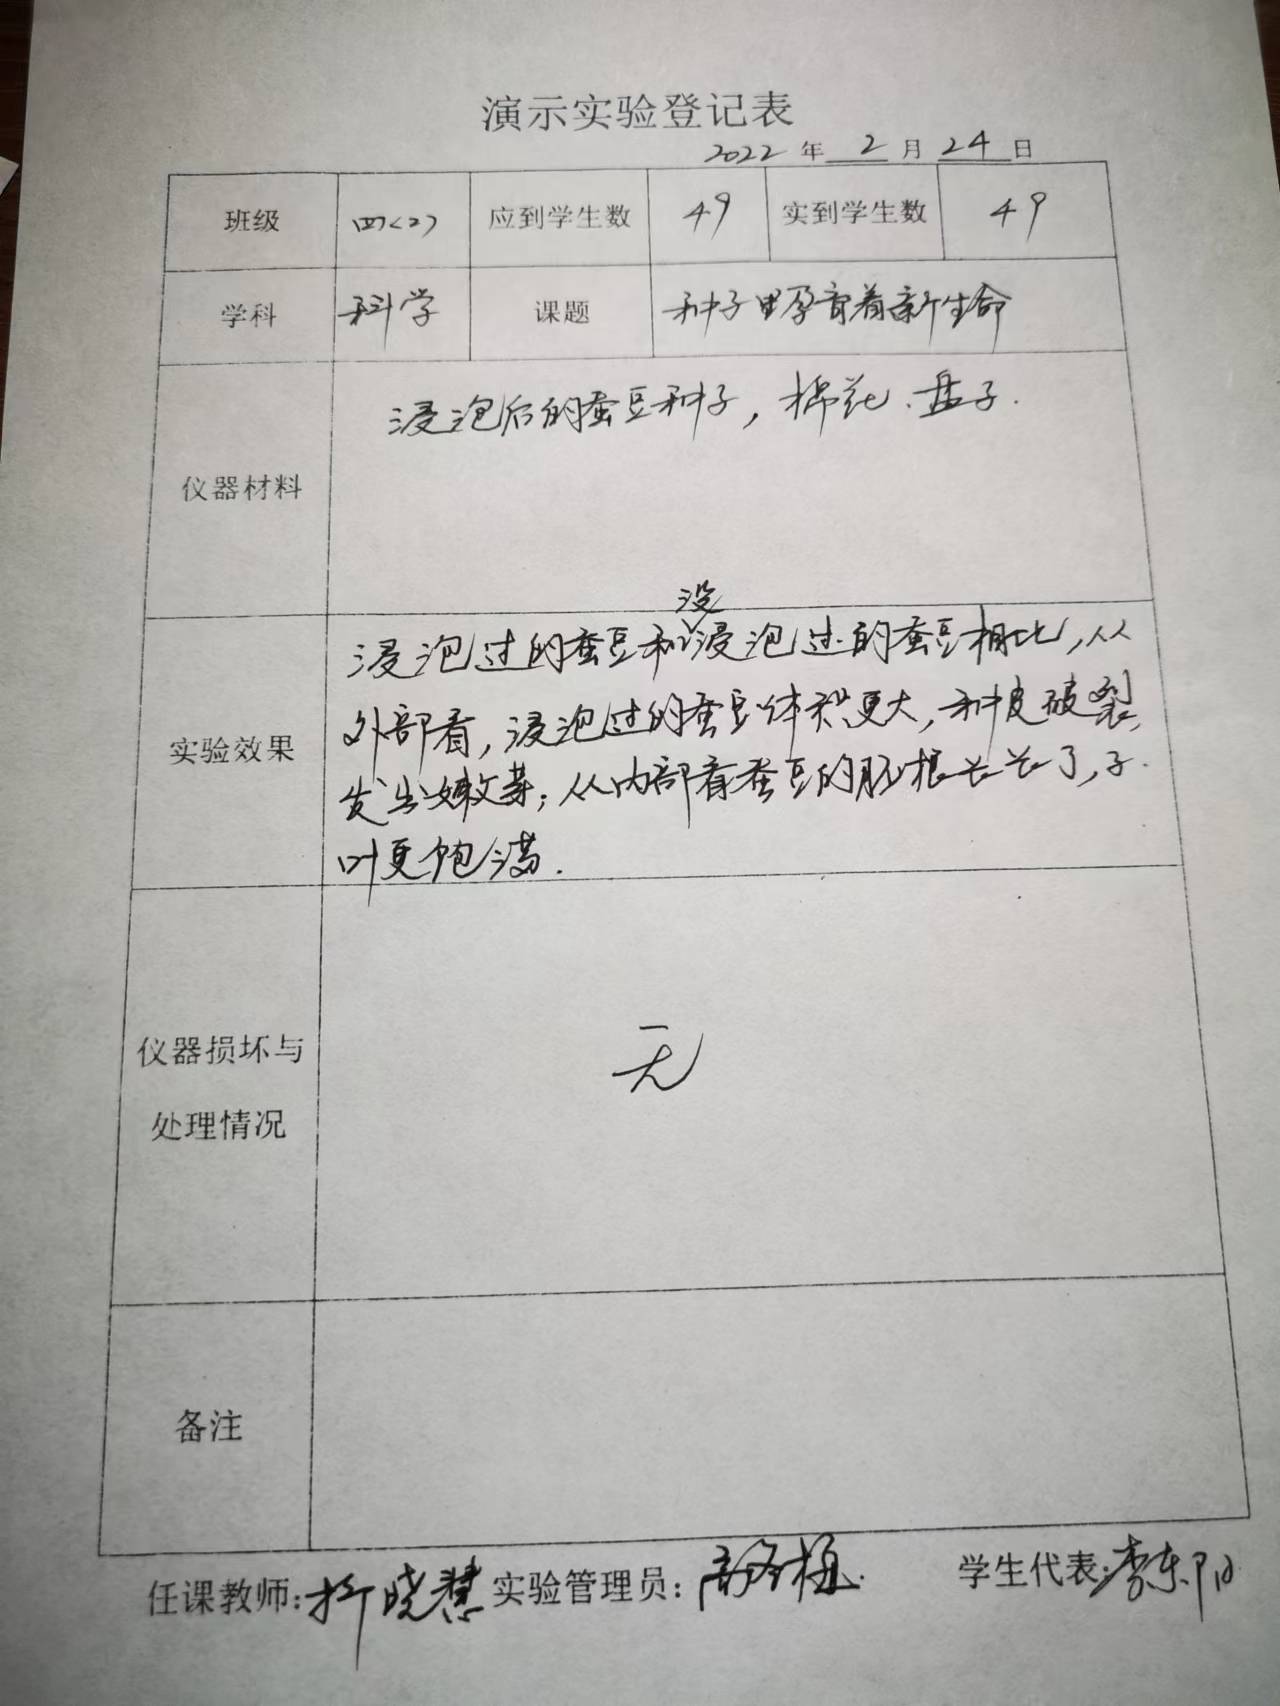 演示实验登记表
2022 年 2 月 24 日
班级 四(2) 应到学生数 49 实到学生数 49
学科 科学 课题 种子里孕育着新生命
仪器材料 浸泡后的蚕豆种子,棉花、盘子.
实验效果
浸泡过的蚕豆和没浸泡过的蚕豆相比,从
外部看,浸泡过的蚕豆体积更大,种皮破裂,
发出嫩芽;从内部看蚕豆的胚根长长了,子
叶更饱满.
仪器损坏与
处理情况
无
备注
任课教师: 晓慧 实验管理员: 学生代表: 李东阳